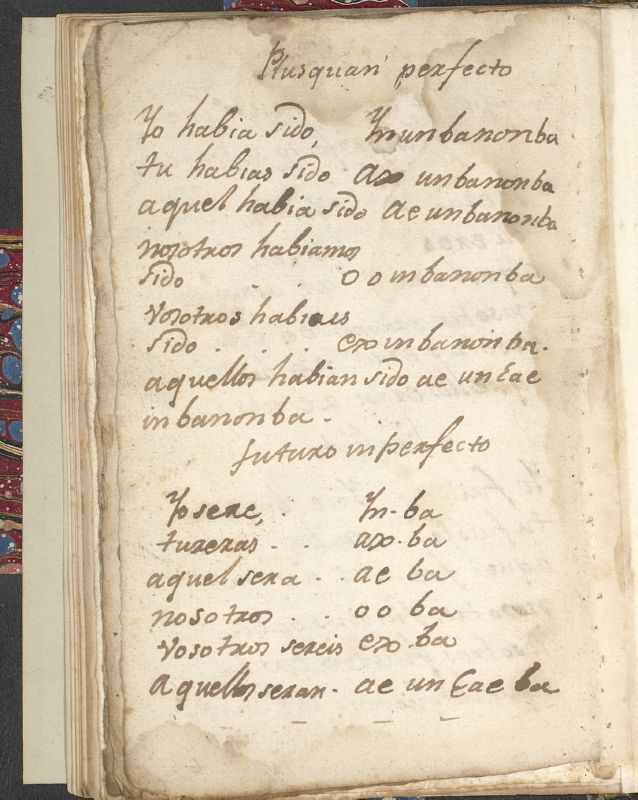 Plusquan perfecto
Yo habia sido, Yn un banonba
tu habias sido ax unbanonba
aquel habia sido ae unbanonba
nosotros habiamos
sido . . o o in banonba
vosotros habiais
sido . . . exo in banonba.
aquellos habian sido ae un Eae
in banonba.
futuro inperfecto
Yo sere, . Yn. ba
tu seras . . ax. ba
aquel sera . . ae ba
nosotros . . o o ba
vosotros sereis exo ba
Aquellos seran. ae un Eae ba